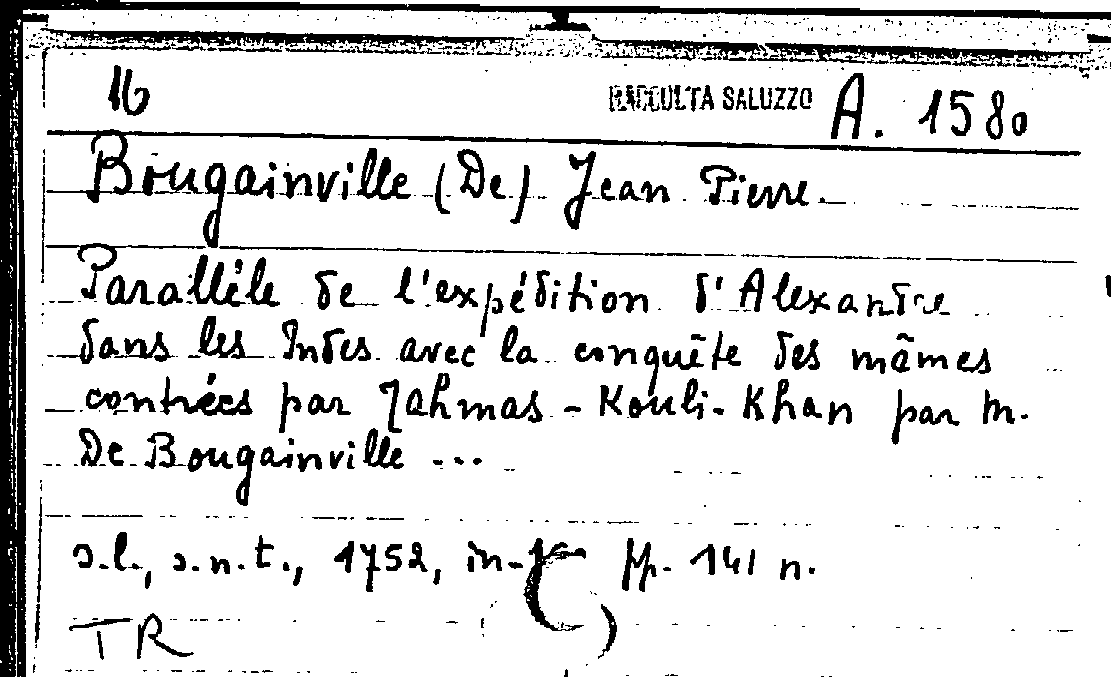 16 RACCOLTA SALUZZO A. 1580
Bougainville (De) Jean Pierre.
Parallèle de l'expédition d'Alexandre
dans les Indes avec la conquête des mâmes
contrées par Tahmas-Kouli-Khan par M.
De Bougainville ...
s.l., s.n.t., 1752, in- pp. 141 n.
TR